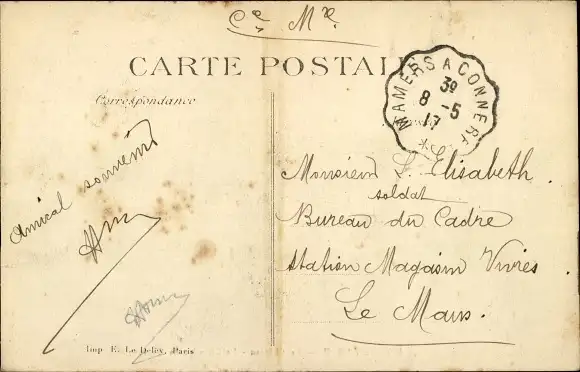 Cce Mre
CARTE POSTALE
Correspondance
MAMERS A CONNERRÉ
3º
8 -5
17
Amical souvenir
Monsieur L. Elisabeth.
soldat
Bureau du Cadre
Station Magasin Vivres
Le Mans.
Imp E. Le Deley, Paris